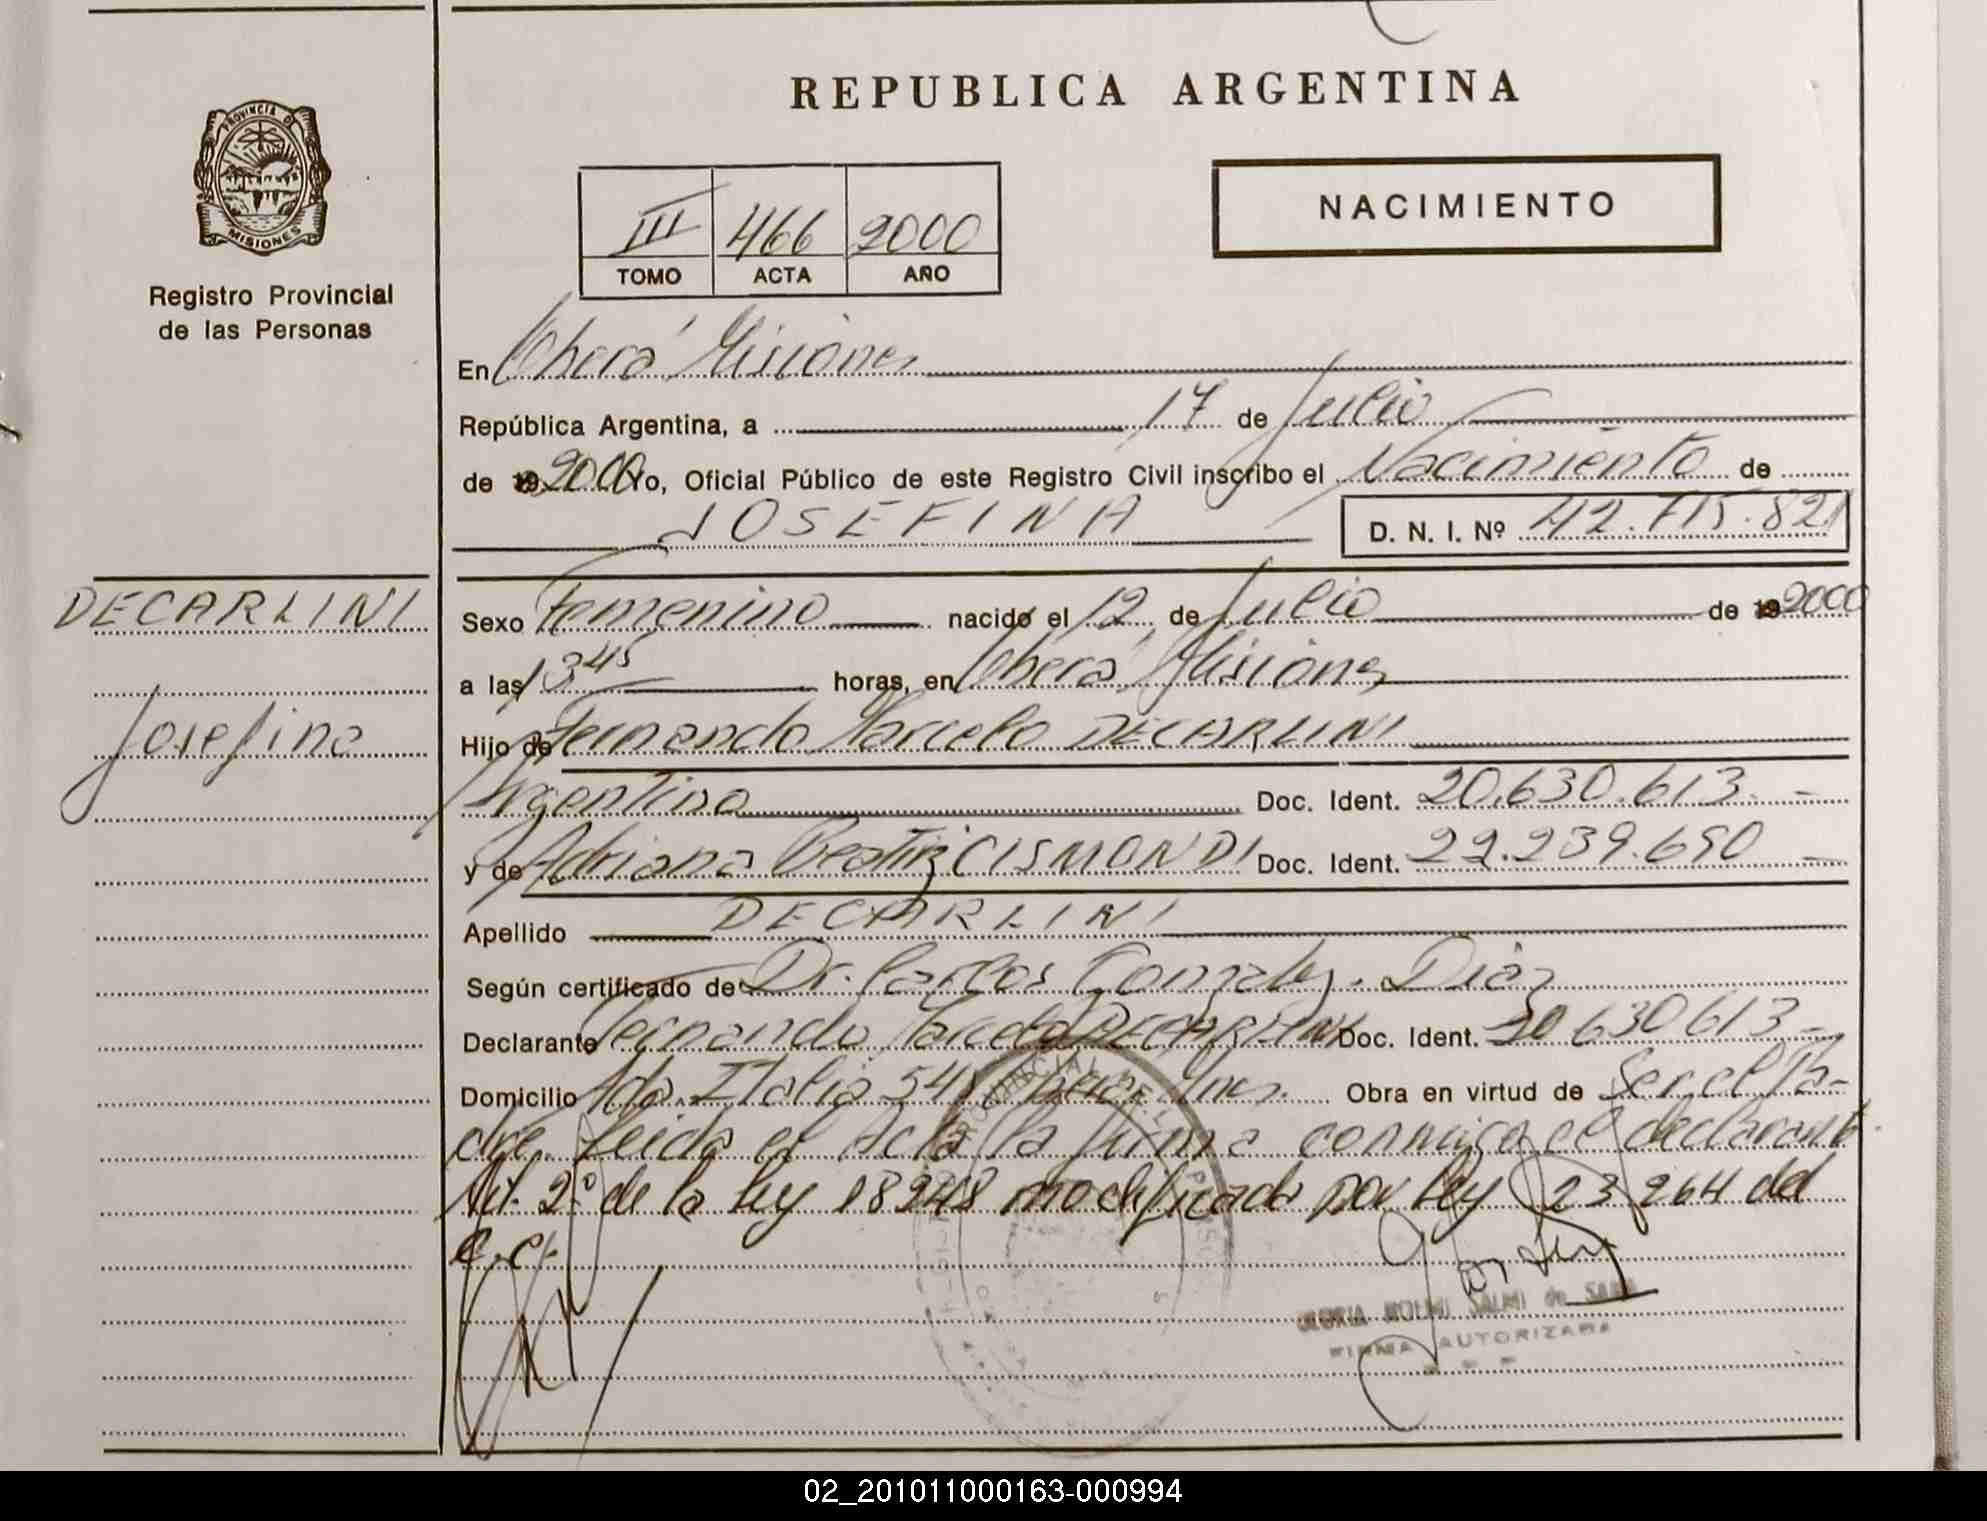 REPUBLICA ARGENTINA
PROVINCIA DE MISIONES
Registro Provincial
de las Personas
NACIMIENTO
III 466 2000
TOMO ACTA AÑO
En Oberá Misiones
República Argentina, a 17 de Julio
de 19 2000 Yo, Oficial Público de este Registro Civil inscribo el Nacimiento de
JOSEFINA D. N. I. Nº 42.715.821
DECARLINI
Josefina
Sexo Femenino nacido el 12 de Julio de 19 2000
a las 13 45 horas, en Oberá Misiones
Hijo de Fernando Marcelo DECARLINI
Argentino Doc. Ident. 20.630.613.-
y de Adriana Beatriz CISMONDI Doc. Ident. 22.239.690 -
Apellido DECARLINI
Según certificado de Dr. Carlos Gonzalez. Diaz
Declarante Fernando Marcelo DECARLINI Doc. Ident. 20 630 613 -
Domicilio Avda. Italia 541 Oberá Mnes. Obra en virtud de Ser el Pa-
dre. Leida el Acta la firma conmigo el declarante.
Art. 2º de la ley 18248 modificado por Ley 23 264 del
C.C.
GLORIA SALMI de
FIRMA AUTORIZADA
02_201011000163-000994